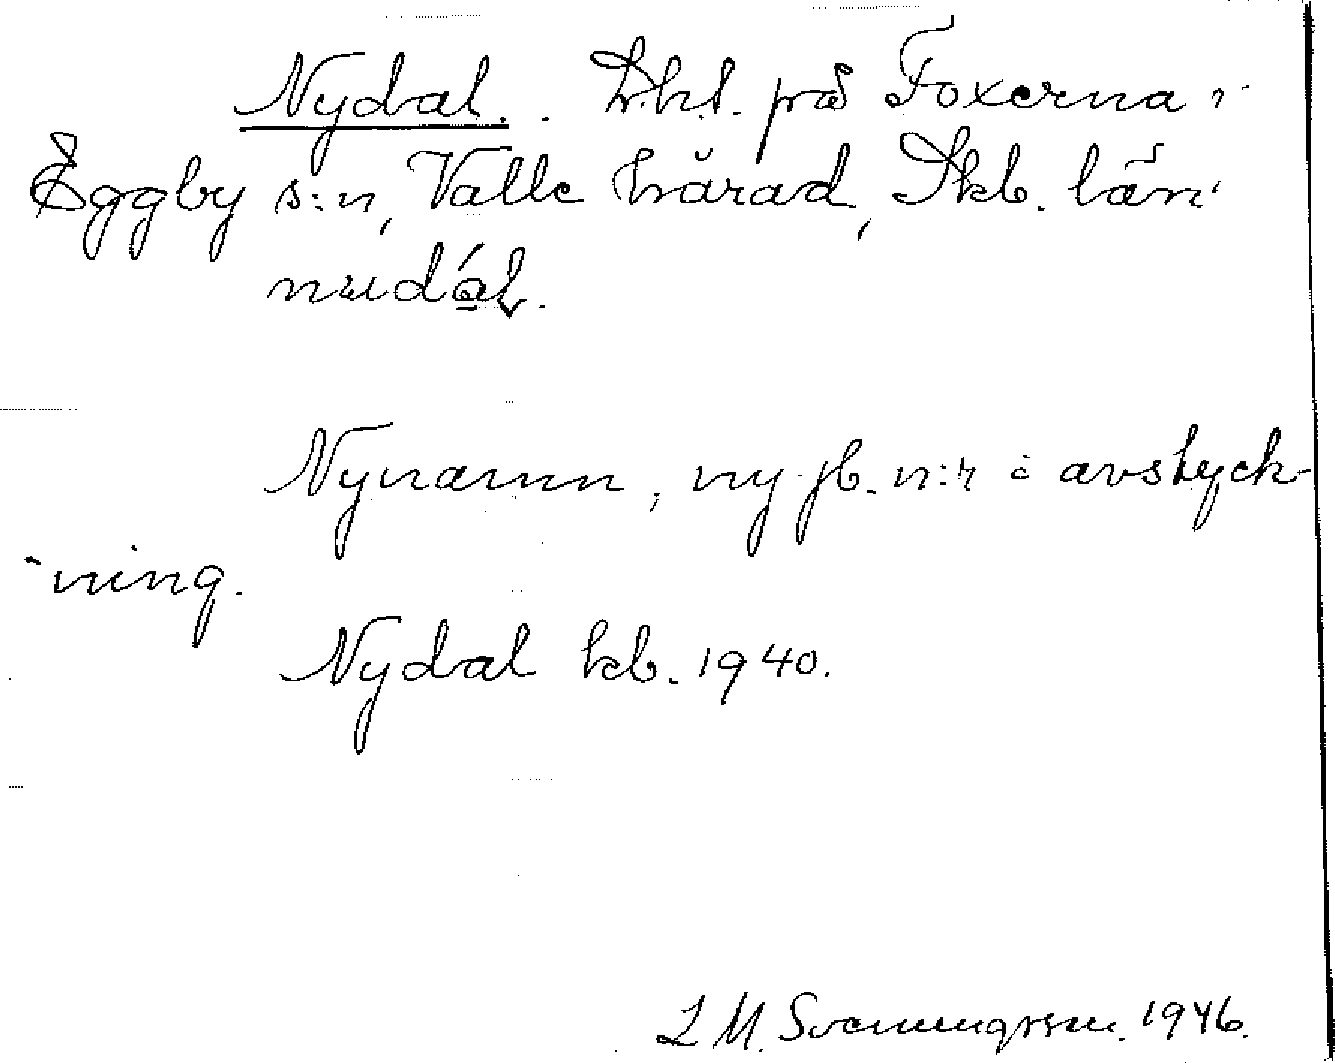 Nydal. Lht. på Foxerna i
Eggby s:n, Valle härad, Skb. län
Nynamn, ny jb. n:r i avstyck-
ning.
Nydal kb. 1940.
L M. Svenungsson. 1946.